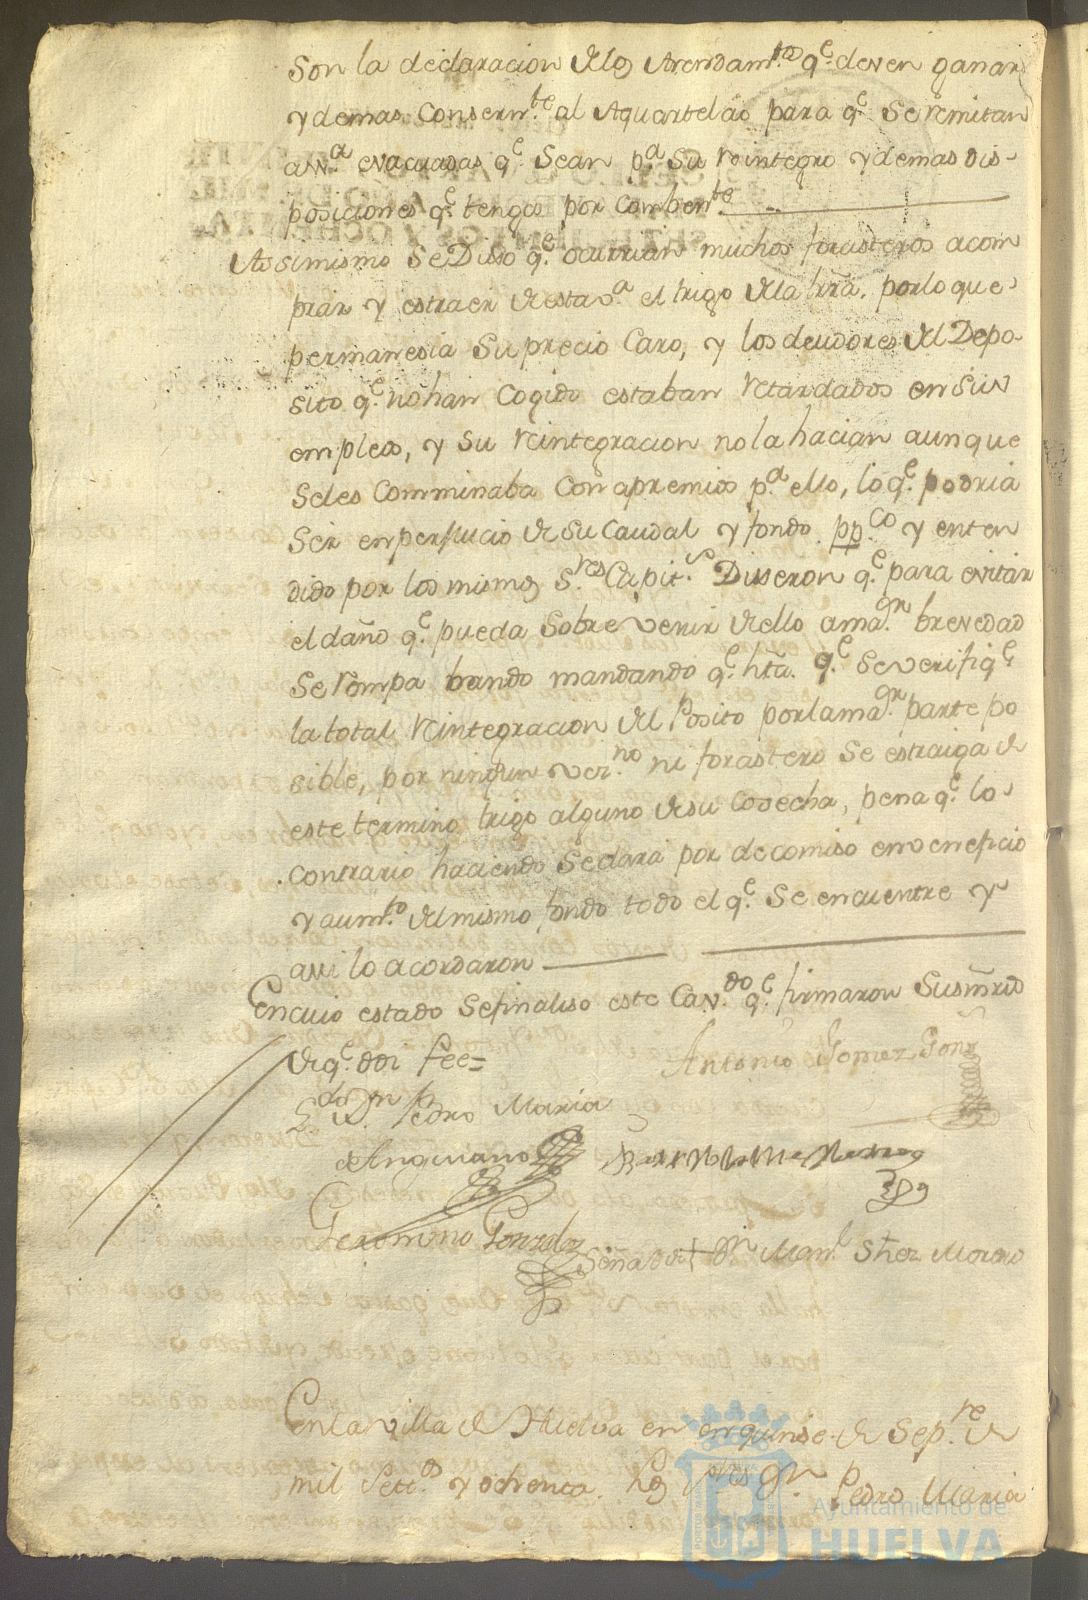 Son la declaracion de los Arrendam.tos q.e deven ganar
y demas Consern.te al Aquartelao para q.e Se remitan
evacuadas q.e Sean p.a Su reintegro y demas dis-
posiciones q.e tenga por comben.te
Assimismo Se Disso q.e ocurrian muchos forasteros a com
prar y estraer de esta v.a el trigo de la trra. por lo que
permanesia Su precio Caro, y los deudores del Depo-
sito q.e no han Cogido estaban retardados en Sus
empleos, y Su reintegracion no la hacian aunque
Seles Comminaba Con apremios p.a ello, lo q.e podria
Ser en perjuicio de Su Caudal y fondo pp.co y enten
dido por los mismos S.res Capit.s Disseron q.e para evitar
el daño q.e pueda Sobrevenir de ello a ma.or brevedad
Se rompa bando mandando q.e hta. q.e Se verifiq.e
la total reintegracion del Posito por la ma.or parte po
sible, por ningun vez.no ni forastero Se estraiga de
este termino trigo alguno de su Cosecha, pena q.e lo
contrario haciendo Se dara por decomiso en veneficio
y aum.to del mismo fondo todo el q.e Se encuentre y
assi lo acordaron
En cuio estado Se finaliso este Cav.do q.e firmaron Sus mrds
de q.e doi fee=
Antonio Gomez Gonz
L.do D.n Pedro Maria
de Anguiano
Geronimo Gonzalez
Señal de † D.n Man.l Shez Moreno
En la villa de Huelva en en quinse de Sep.re de
mil Sett.os y ochenta. los S.res D.n Pedro Maria
Ayuntamiento de
HUELVA